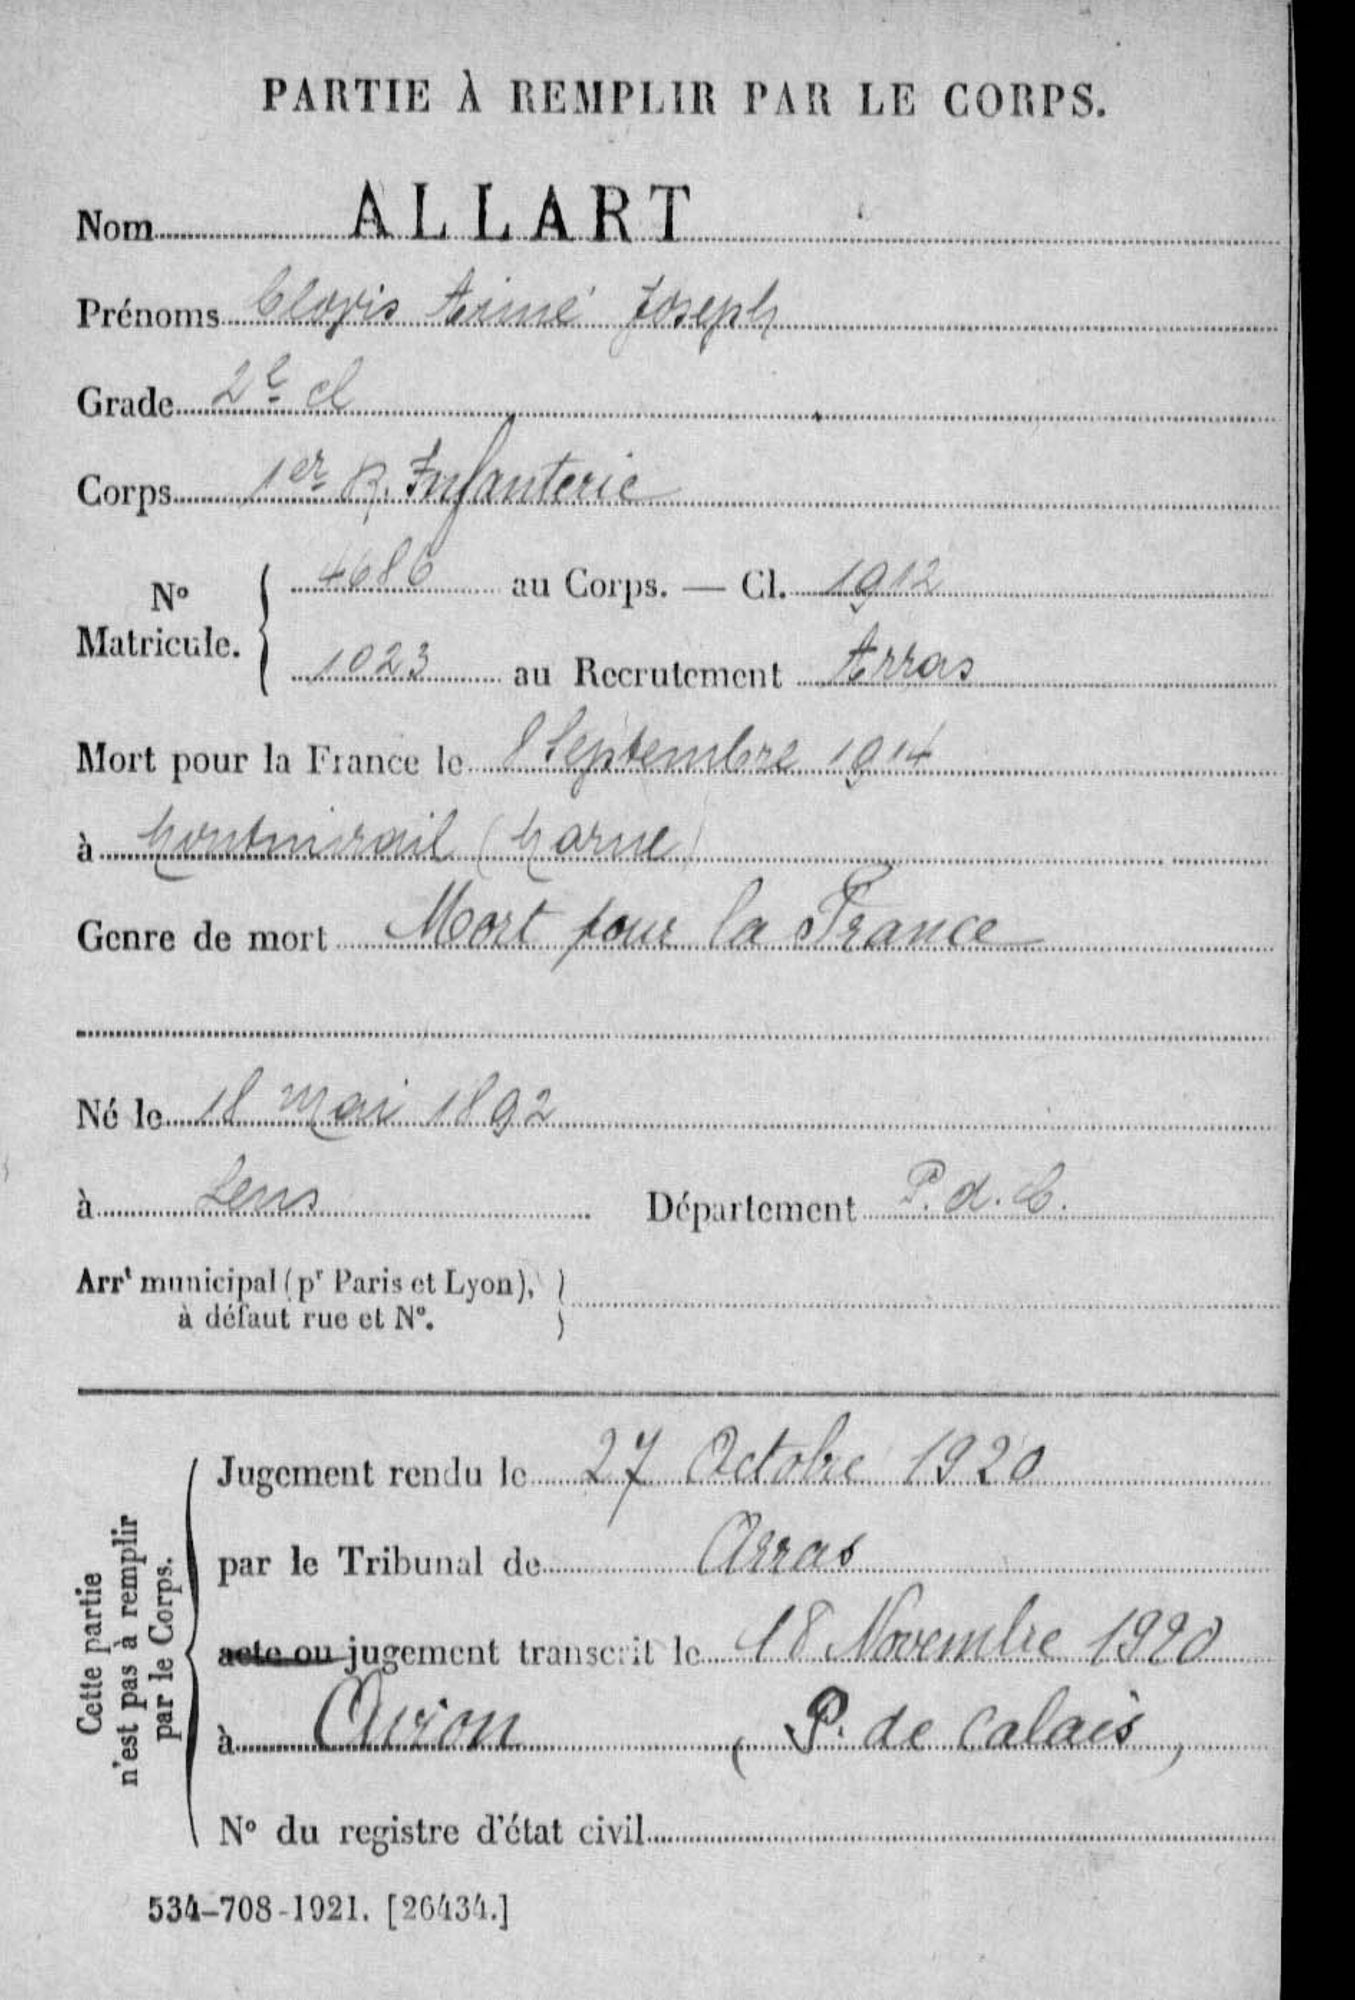 PARTIE À REMPLIR PAR LE CORPS.
Nom ALLART
Prénoms Clovis Aimé Joseph
Grade 2e cl
Corps 1er R. Infanterie
No Matricule.
4686 au Corps. — Cl. 1912
1023 au Recrutement Arras
Mort pour la France le 8 Septembre 1914
à Montmirail (Marne)
Genre de mort Mort pour la France
Né le 18 Mai 1892
à Lens Département P. d. C.
Arrt municipal (pr Paris et Lyon),
à défaut rue et No.
Cette partie
n'est pas à remplir
par le Corps.
Jugement rendu le 27 Octobre 1920
par le Tribunal de Arras
acte ou jugement transcrit le 18 Novembre 1920
à Avion (P. de Calais)
No du registre d'état civil
534-708-1921. [26434.]